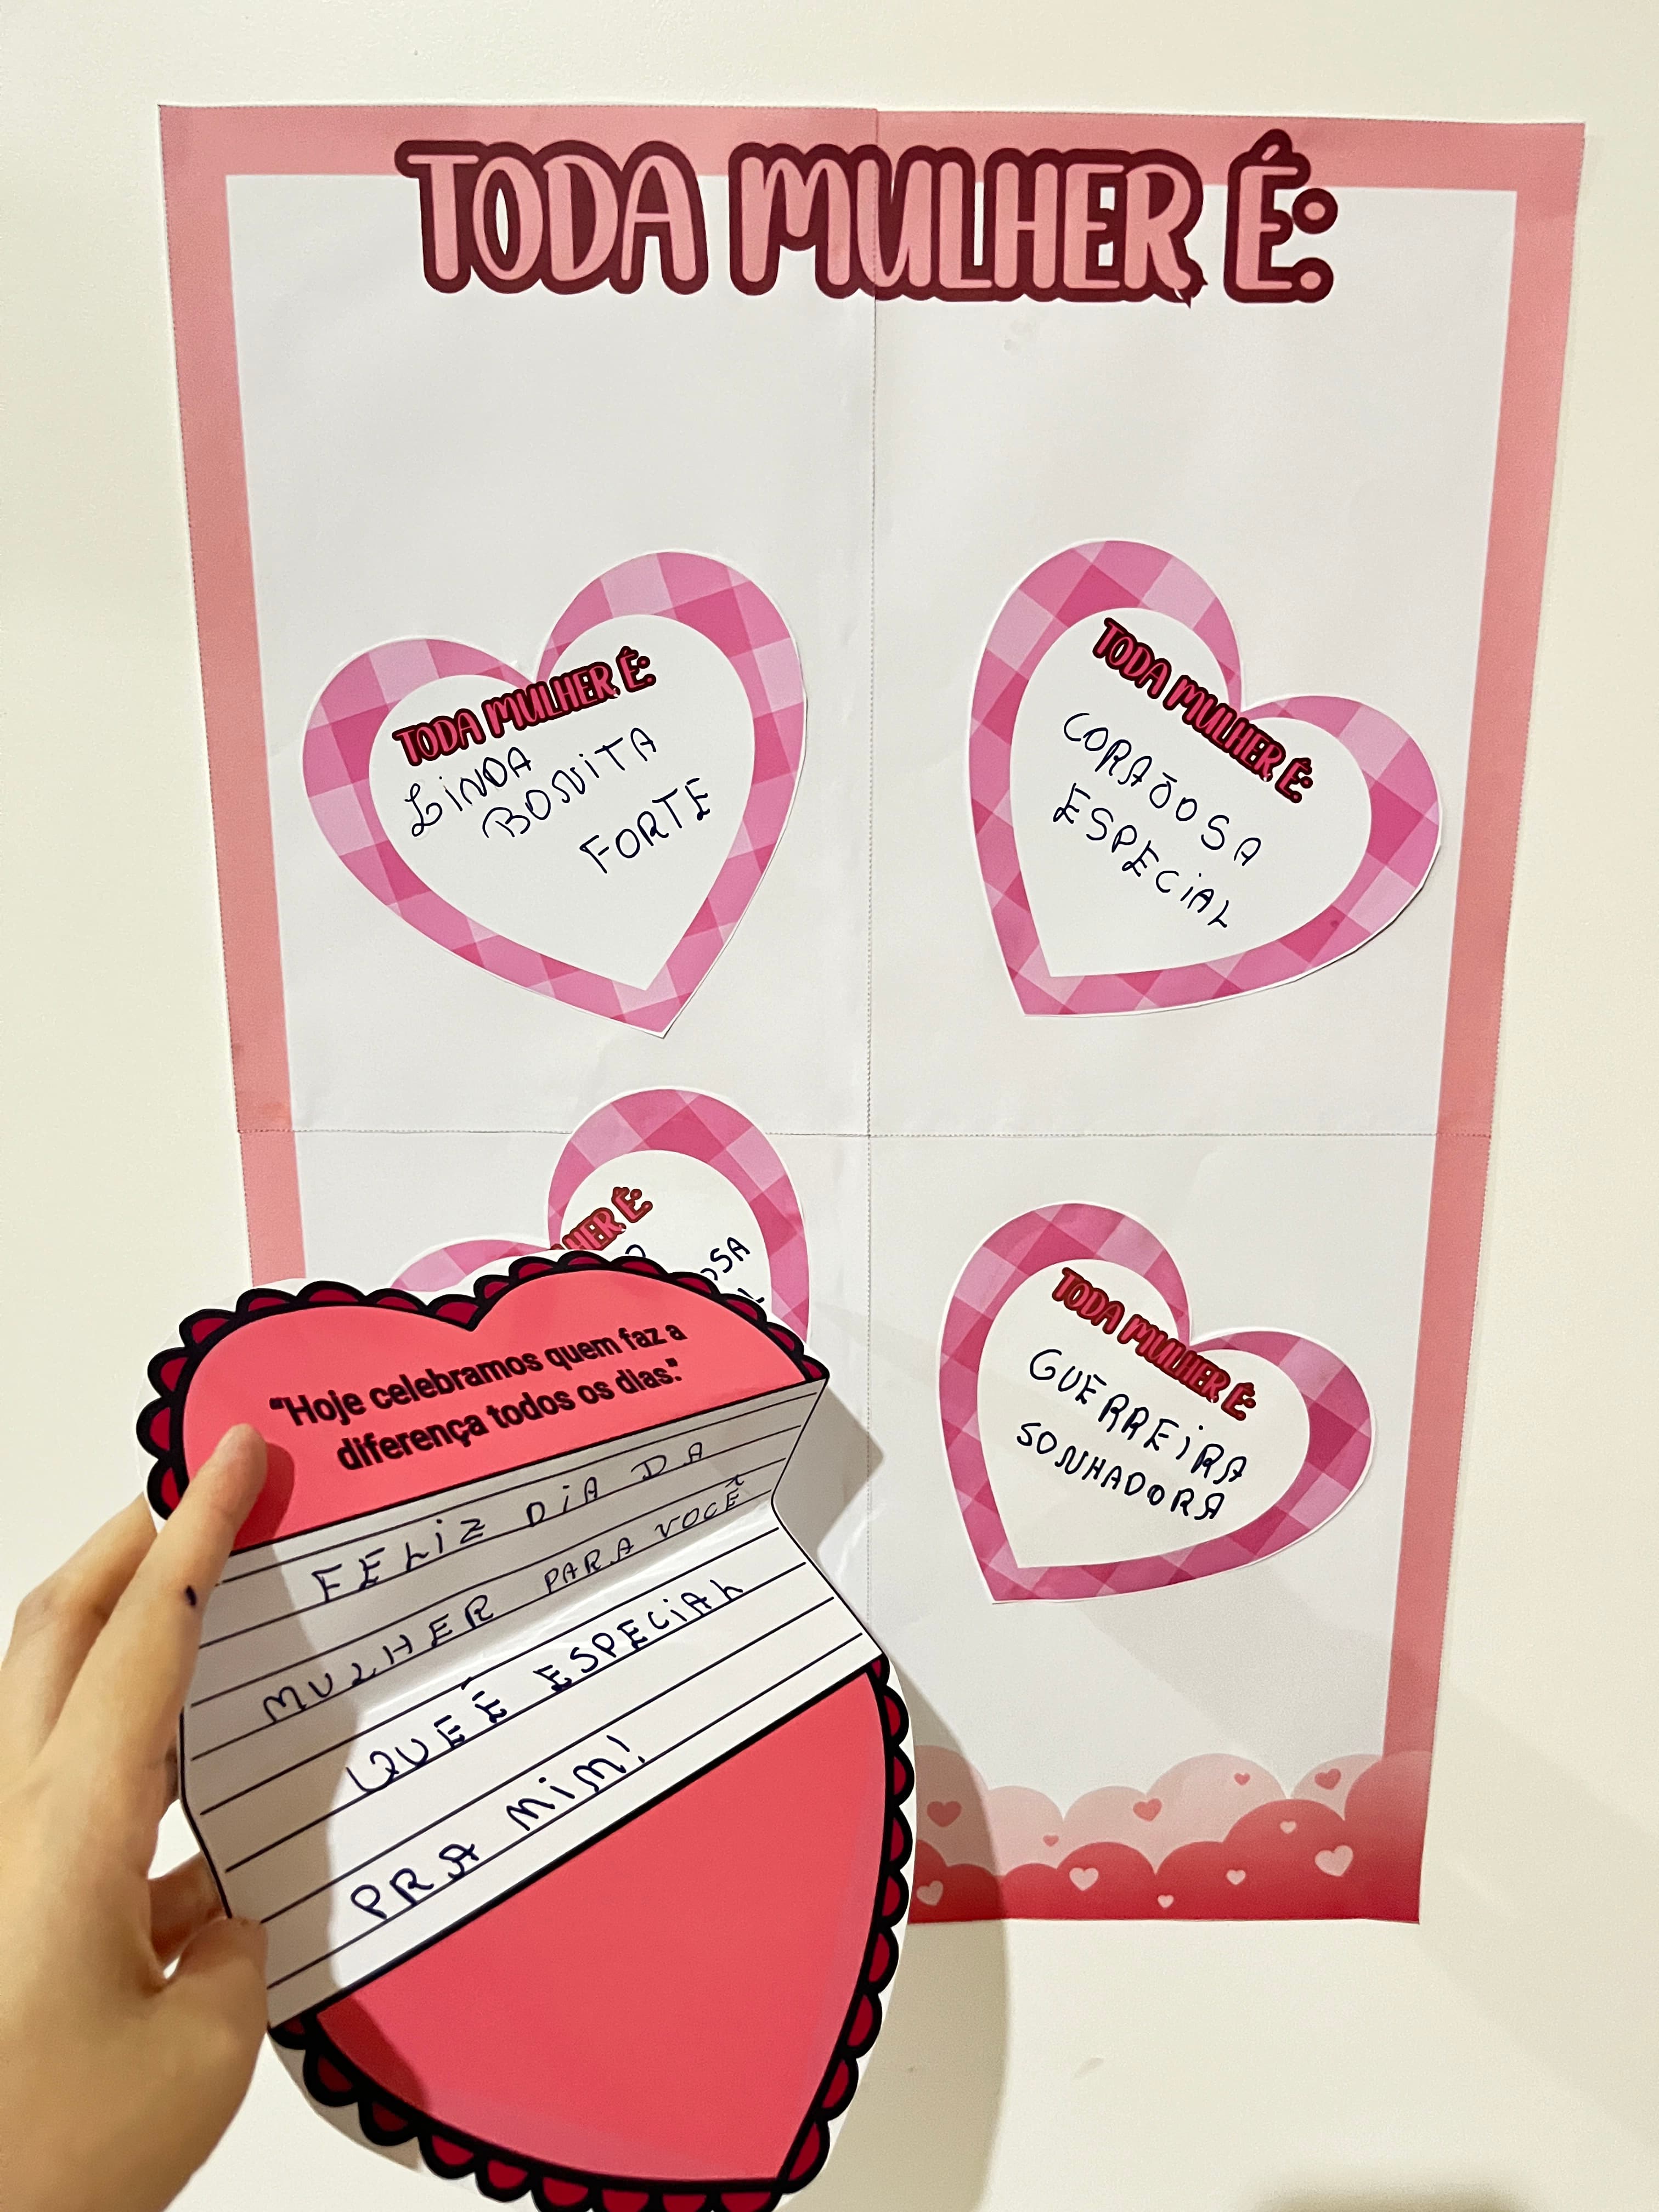 TODA MULHER É:
TODA MULHER É:
LINDA
BONITA
FORTE
TODA MULHER É:
CORAÕOSA
ESPECIAL
TODA MULHER É:
GUERREIRA
SONHADORA
"Hoje celebramos quem faz a
diferença todos os dias."
FELIZ DIA DA
MULHER PARA VOCÊ
QUE É ESPECIAL
PRA MIM!